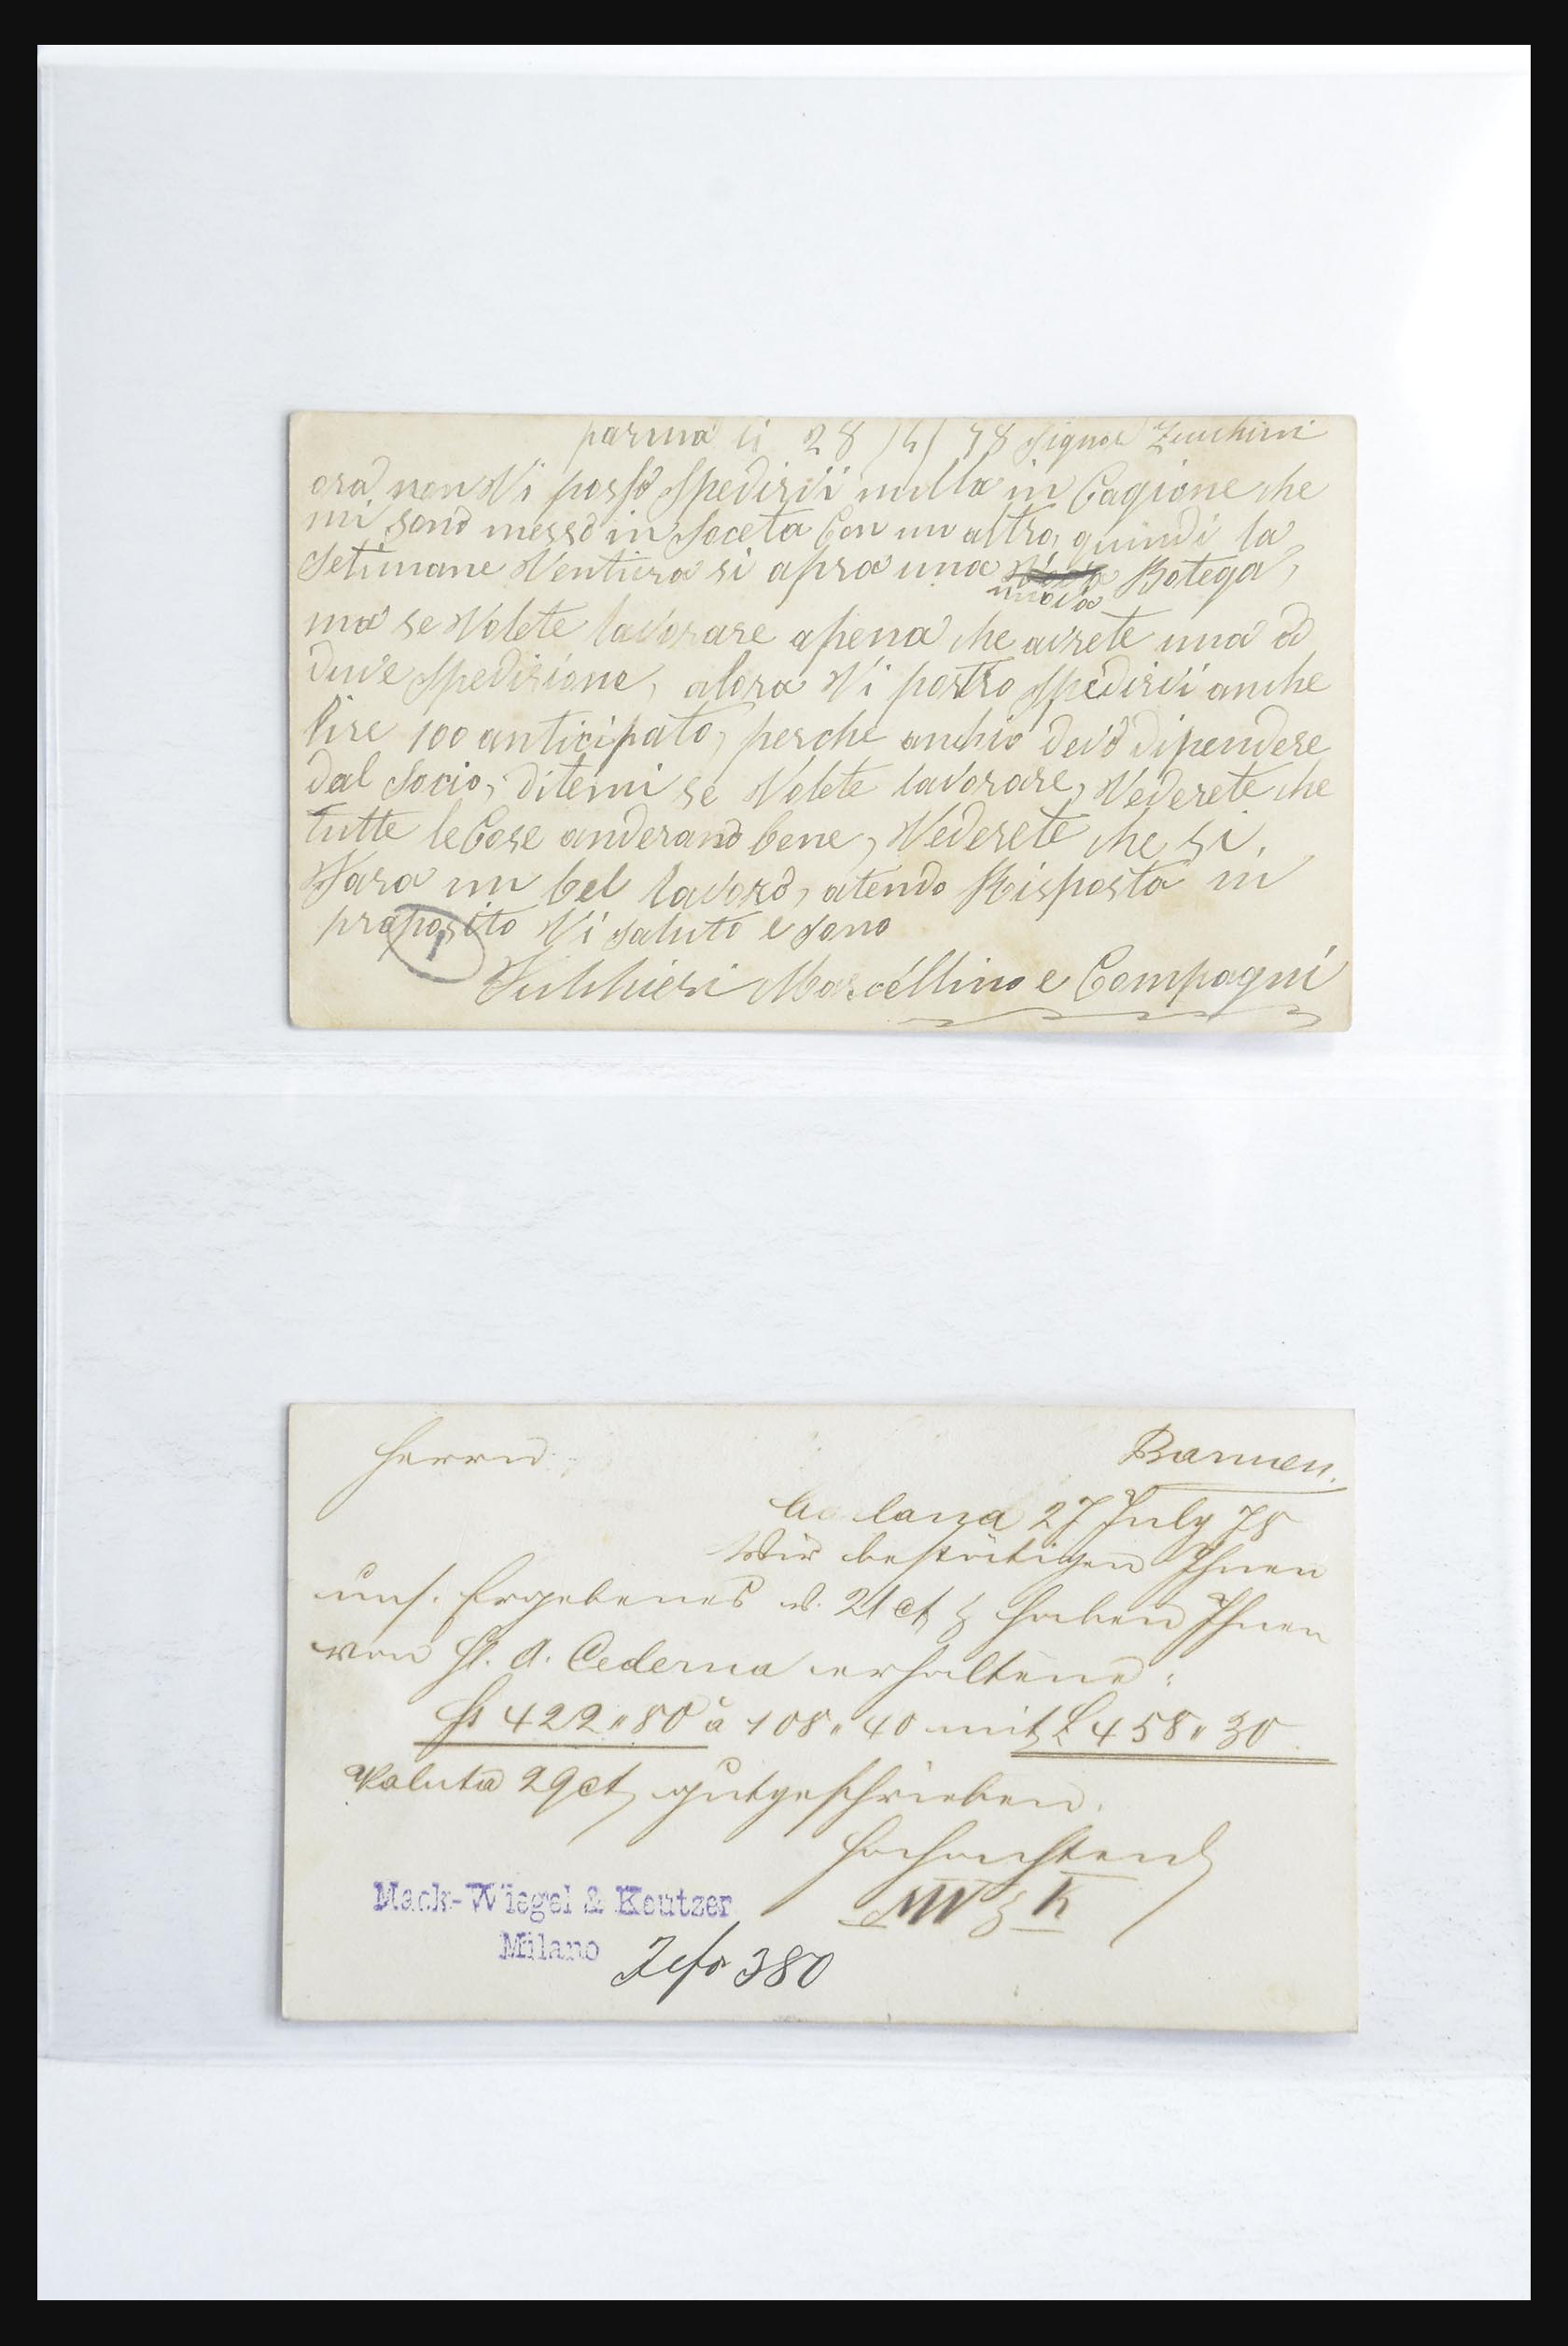 parma li 28 /4/ 78 Signor Zucchini
ora non Vi posso Spedirvi nulla in Cagione che
mi sono messo in Soceta Con un altro, quindi la
Setimane Ventiera si aprà una Botega,
nuova
ma se Volete lavorare apena che avrete una o
duve Spedizione, alora Vi postro Spedirvi anche
lire 100 anticipato, perche anchio devo dipendere
dal Socio, ditemi se Volete lavorare, Vederete che
tutte le Cose anderano bene, Vederete che si
Fara un bel lavoro, atendo Risposta in
proposito Vi saluto e sono
1
Marcellino e Compagni
Herrn
Barmen.
27 July 78
Wir bestätigen Ihnen
uns. Ergebenes v. 21 ct & haben Ihnen
von H. A. Cederna erhaltene:
422 " 80 à 108 " 40 mit £ 458 " 30
Valuta 29 ct gutgeschrieben.
Hochachtend
MW & K
Mack-Wiegel & Keutzer
Milano
380